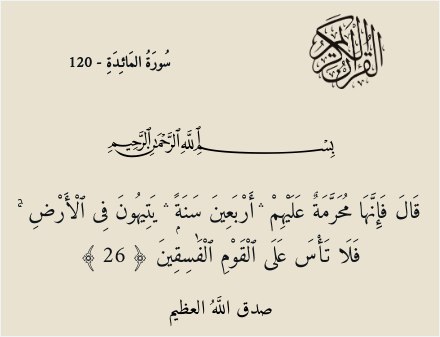 القرآن الكريم
سُورَةُ المَائِدَةِ - 120
بِسْمِ اللَّهِ الرَّحْمَٰنِ الرَّحِيمِ
قَالَ فَإِنَّهَا مُحَرَّمَةٌ عَلَيْهِمْ ۛ أَرْبَعِينَ سَنَةًۭ ۛ يَتِيهُونَ فِى ٱلْأَرْضِ ۚ
فَلَا تَأْسَ عَلَى ٱلْقَوْمِ ٱلْفَٰسِقِينَ ﴿ 26 ﴾
صدق اللَّهُ العظيم